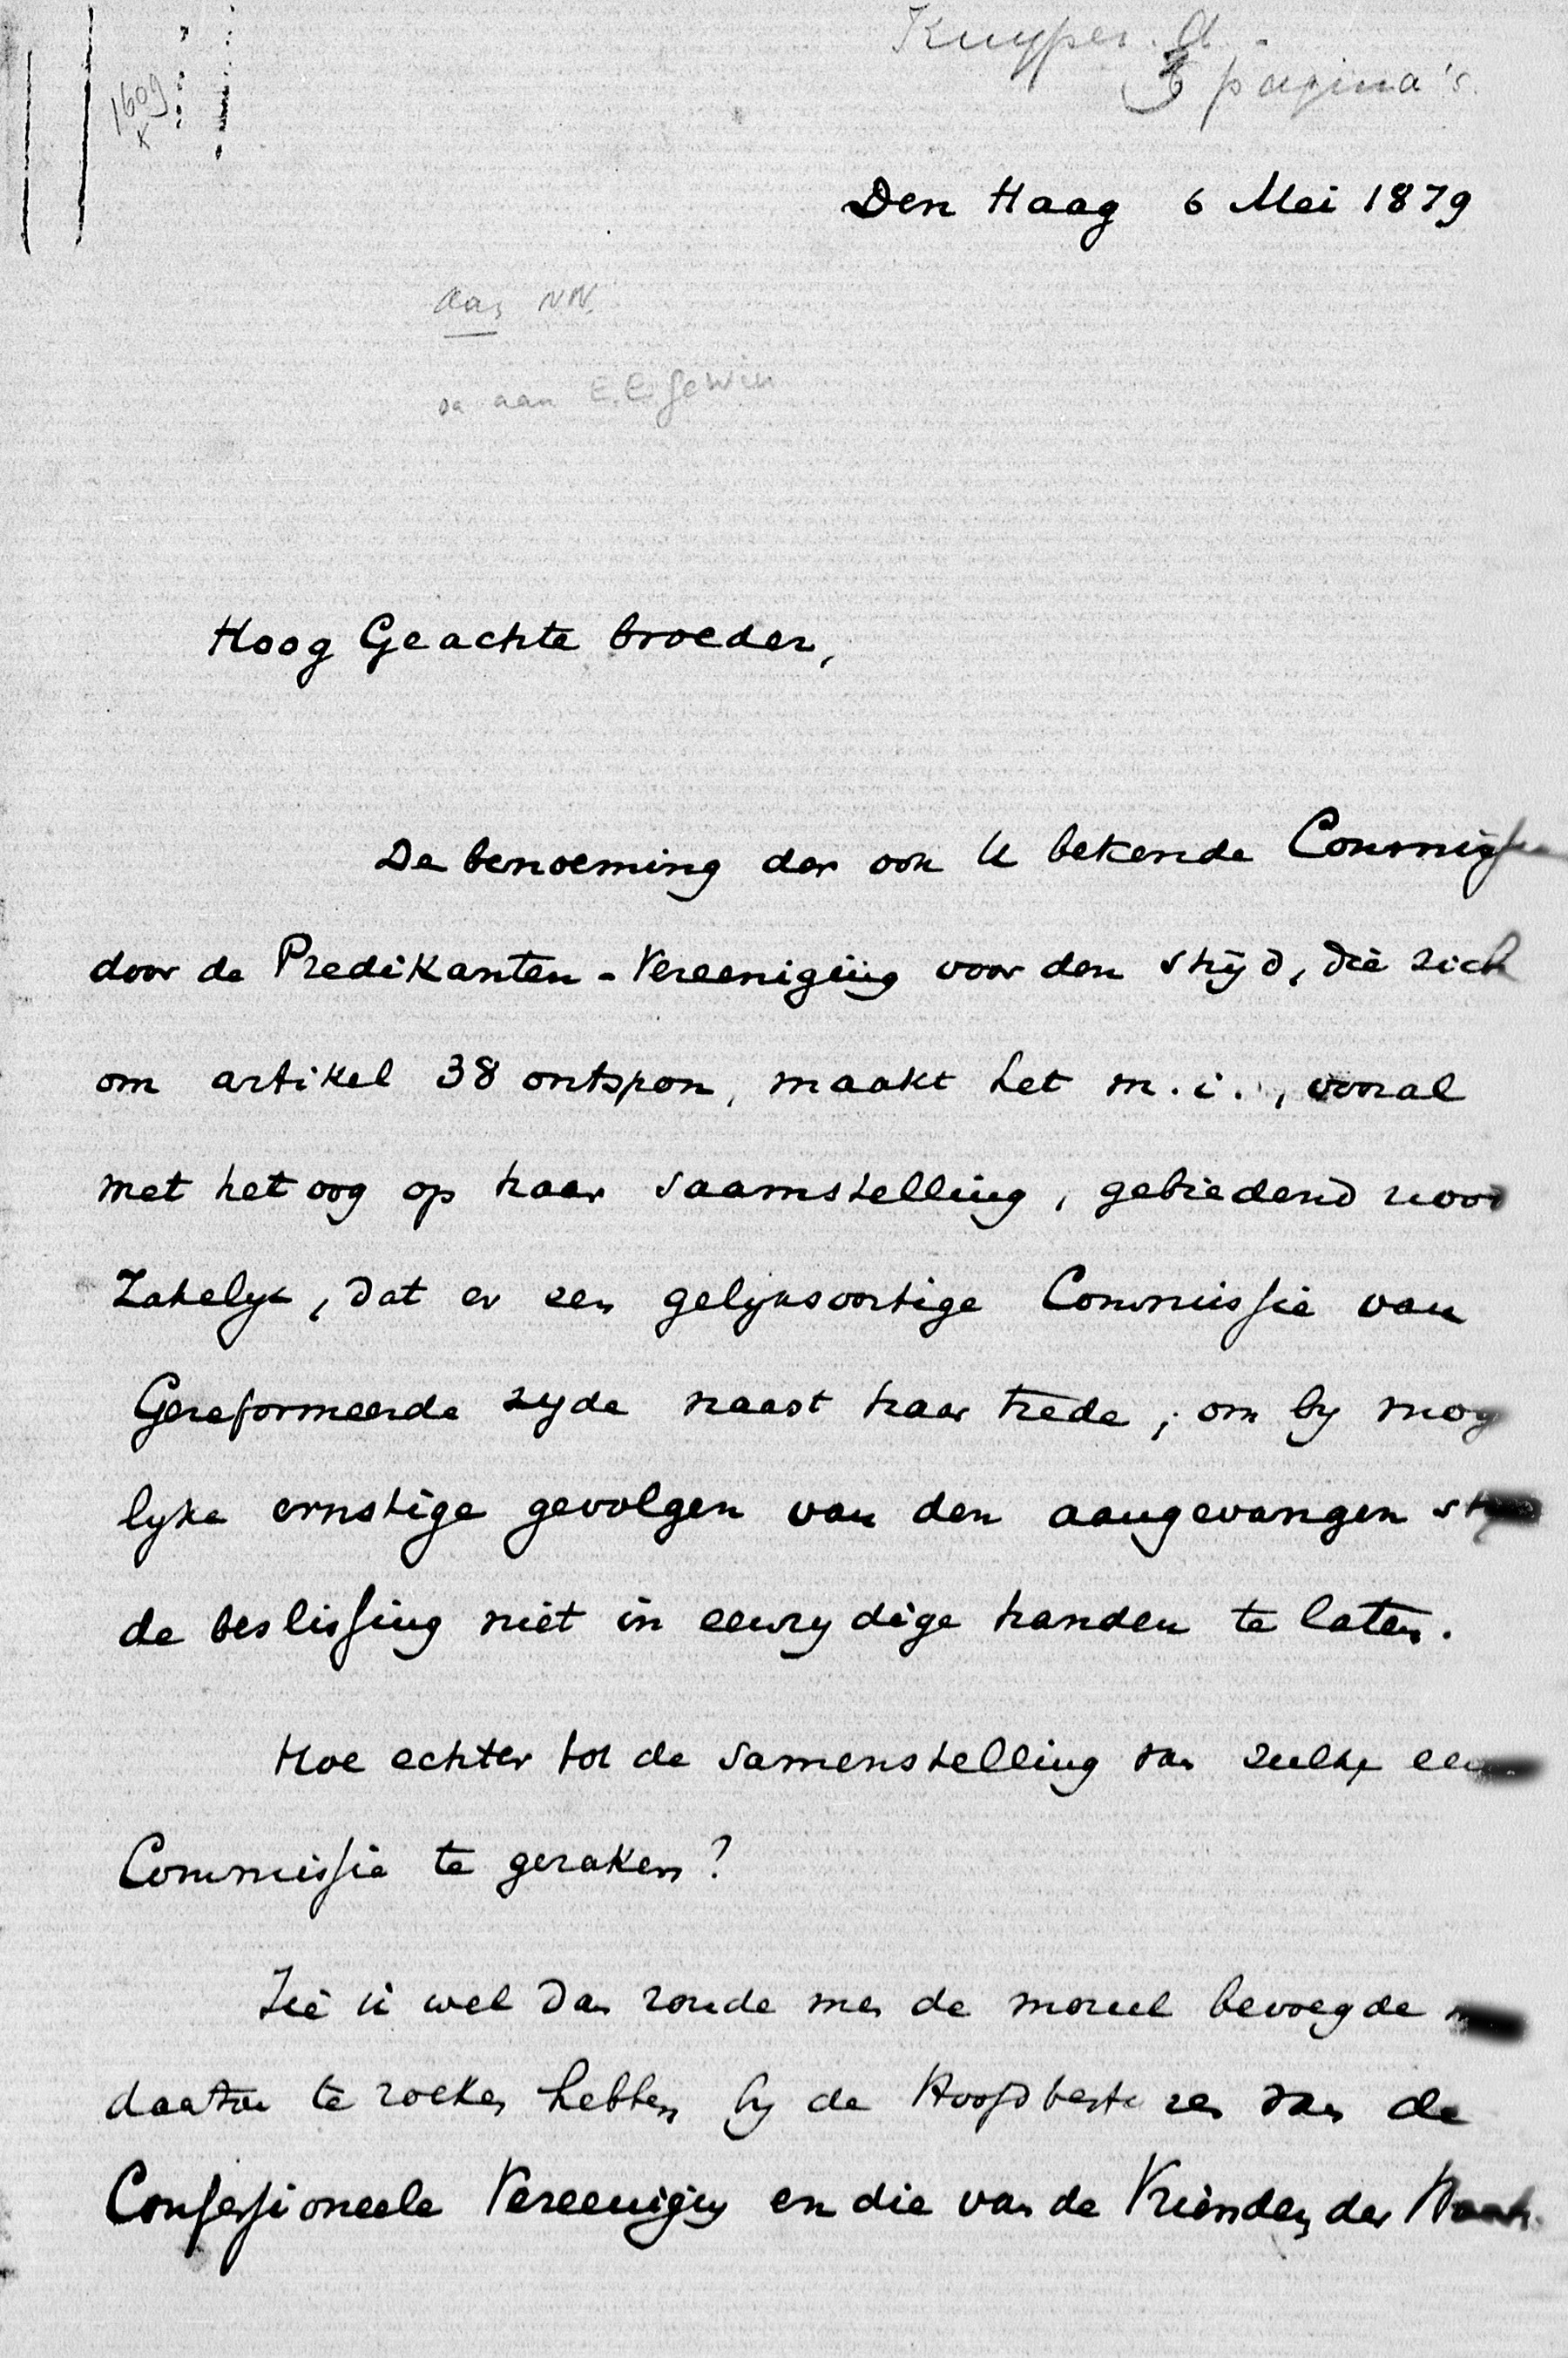 Kuyper. A.
3 pagina's.
1609
K
Den Haag 6 Mei 1879
Aan NN.
aan E.E. Gewin
Hoog Geachte broeder,
De benoeming der ook U bekende Commissie
door de Predikanten-Vereeniging voor den strijd, die zich
om artikel 38 ontspon, maakt het m.i., vooral
met het oog op haar saamstelling, gebiedend nood
Zakelyk, dat er een gelyksoortige Commissie van
Gereformeerde zyde naast haar trede, om by moge
lyke ernstige gevolgen van den aangevangen
de beslissing niet in eenzydige handen te laten.
Hoe echter tot de samenstelling van zulk een
Commissie te geraken?
Zie ik wel dan zoude men de moreel bevoegde
daartoe te zoeken hebben by de Hoofdbesturen van de
Confessioneele Vereeniging en die van de Vrienden der